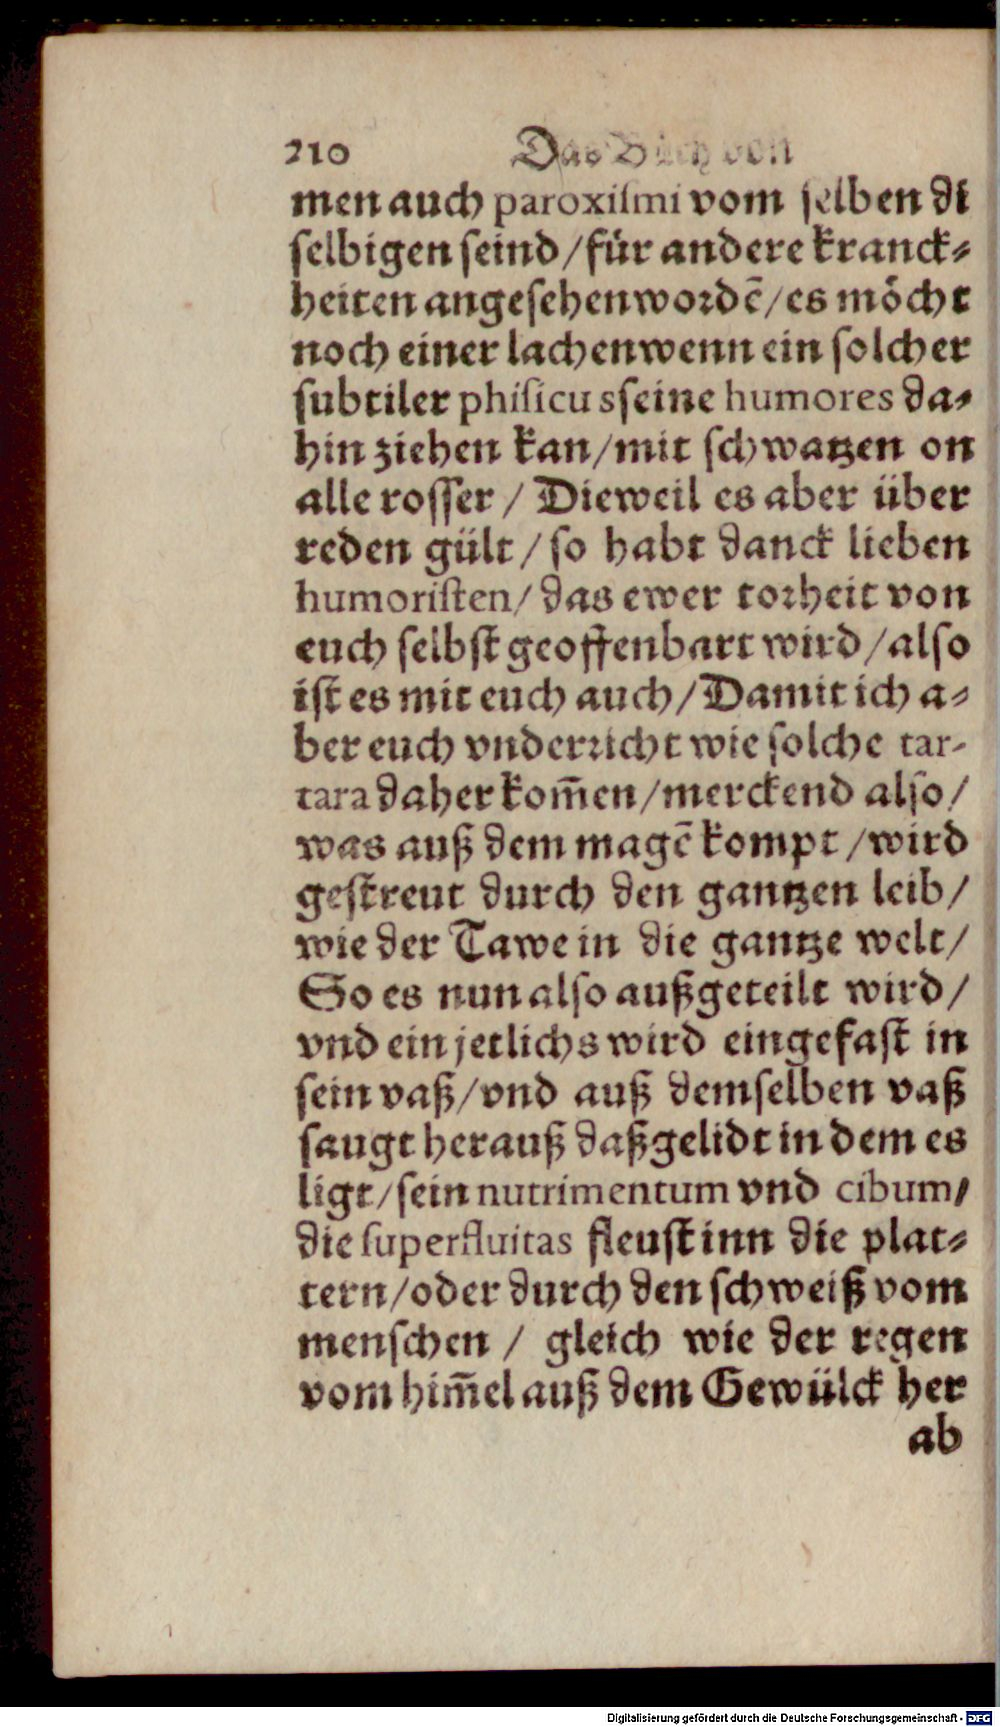 210 Das Buch von
men auch paroxiſmi vom ſelben di
ſelbigen ſeind/für andere kranck⸗
heiten angeſehen wordē/es möcht
noch einer lachen wenn ein ſolcher
ſubtiler phiſicus ſeine humores da⸗
hin ziehen kan/mit ſchwatzen on
alle roſſer / Dieweil es aber über
reden gült / ſo habt danck lieben
humoriſten/ das ewer torheit von
euch ſelbſt geoffenbart wird/alſo
iſt es mit euch auch/Damit ich a⸗
ber euch vnderricht wie ſolche tar-
tara daher kom̄en/merckend alſo/
was auß dem magē kompt /wird
geſtreut durch den gantzen leib/
wie der Tawe in die gantze welt/
So es nun alſo außgeteilt wird/
vnd ein jetlichs wird eingefaſt in
ſein vaß/vnd auß demſelben vaß
ſaugt herauß daß gelidt in dem es
ligt/ſein nutrimentum vnd cibum/
die ſuperfluitas fleuſt inn die plat⸗
tern/oder durch den ſchweiß vom
menſchen / gleich wie der regen
vom him̄el auß dem Gewülck her
ab
Digitalisierung gefördert durch die Deutsche Forschungsgemeinschaft - DFG